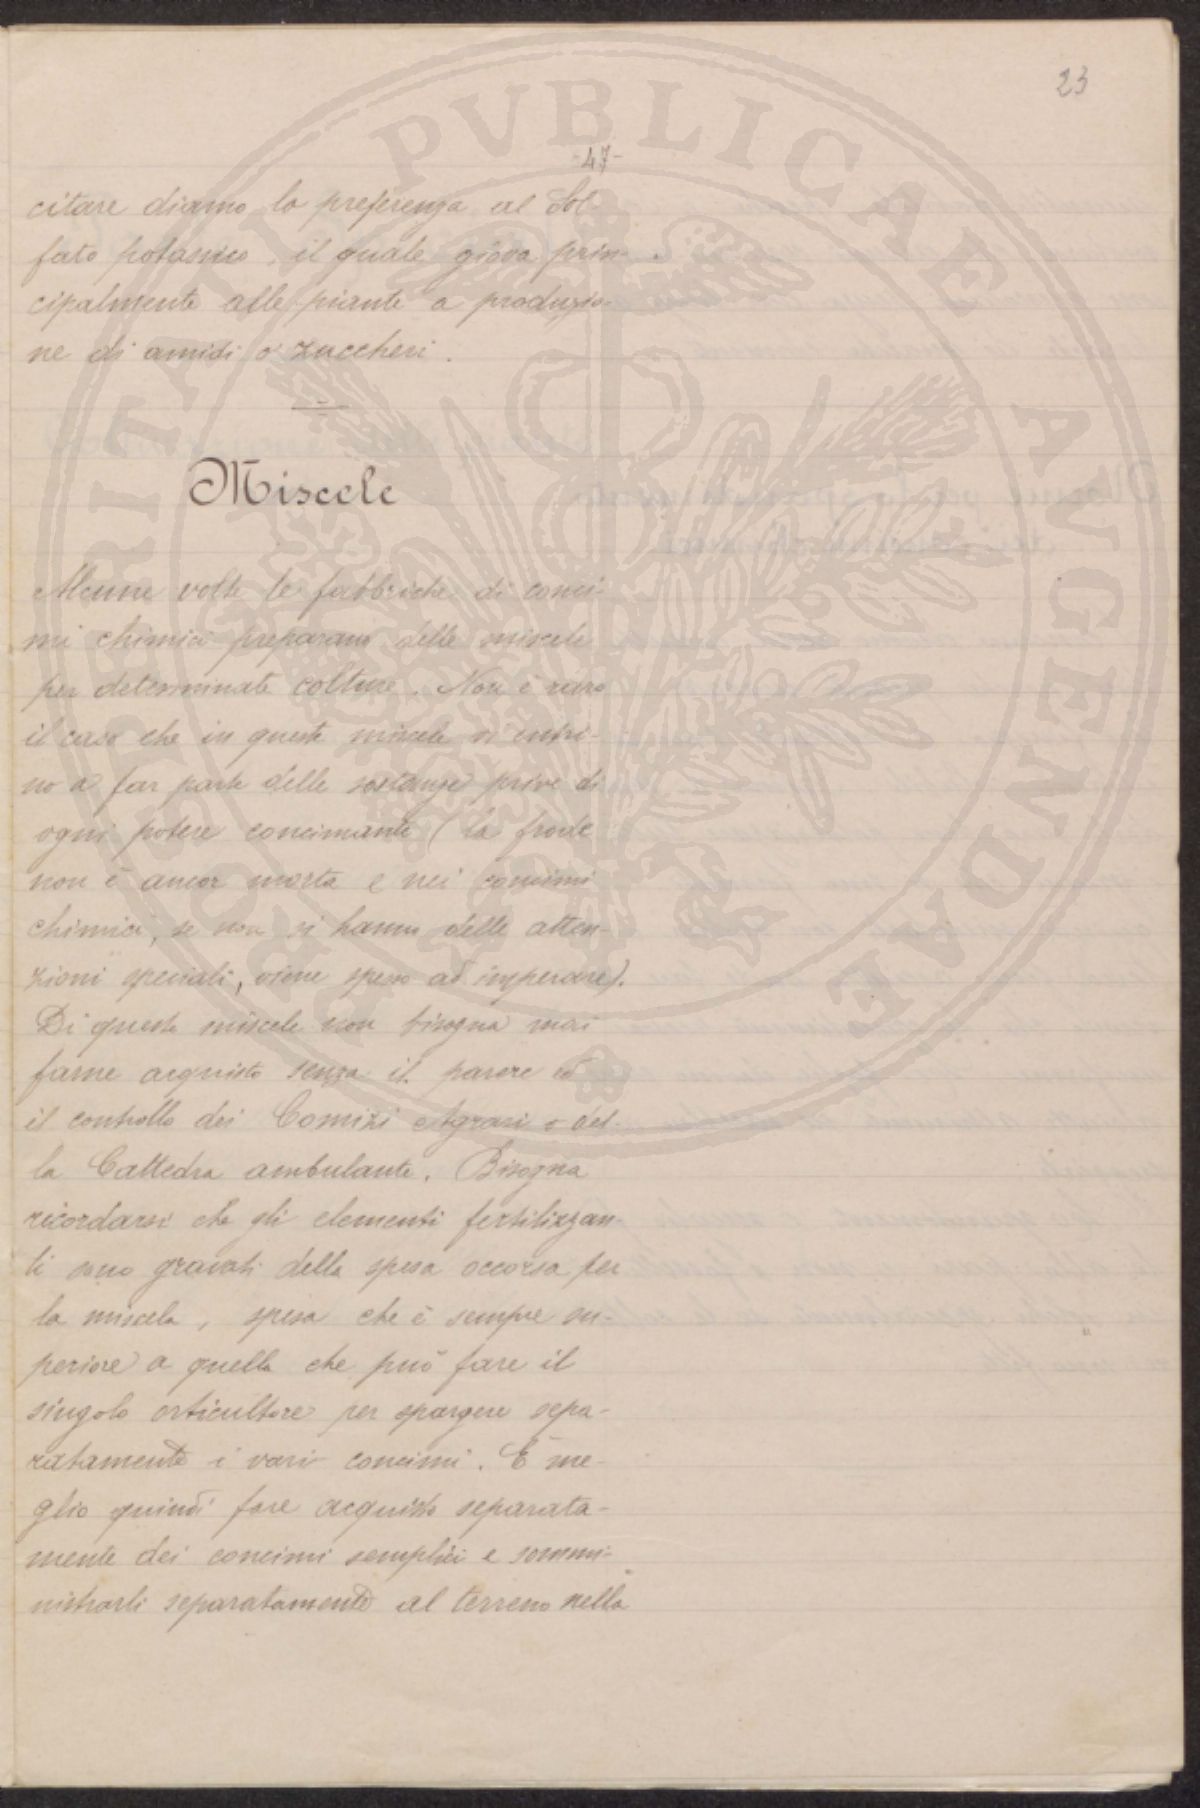 23
-47-
citare diamo la preferenza al Sol-
fato potassico, il quale giova prin-
cipalmente alle piante a produzio-
ne di amidi o zuccheri.
Miscele
Alcune volte le fabbriche di conci-
mi chimici preparano delle miscele
per determinate colture. Non è raro
il caso che in queste miscele vi entri-
no a far parte delle sostanze prive di
ogni potere concimante (la frode
non è ancor morta e nei concimi
chimici, se non si hanno delle atten-
zioni speciali, viene spesso ad imperare).
Di queste miscele non bisogna mai
farne acquisto senza il parere ed
il controllo dei Comizi Agrari o del-
la Cattedra ambulante. Bisogna
ricordarsi che gli elementi fertilizzan-
ti sono gravati della spesa occorsa per
la miscela, spesa che è sempre su-
periore a quella che può fare il
singolo orticultore per spargere sepa-
ratamente i vari concimi. È me-
glio quindi fare acquisto separata-
mente dei concimi semplici e sommi-
nistrarli separatamente al terreno nella
PUBLICAE AVGENDAE